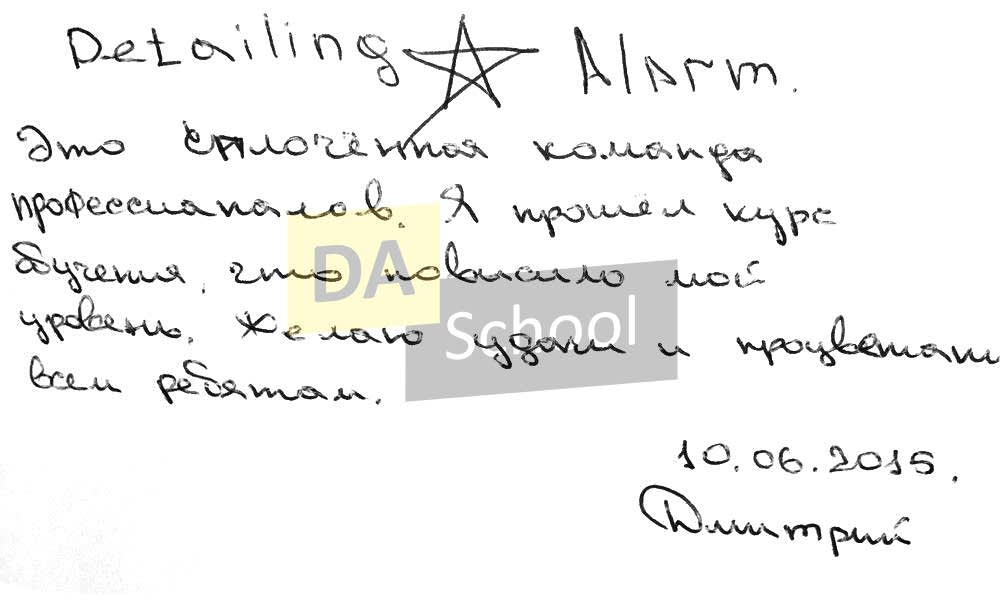 Detailing Alarm.
Это сплочённая команда
профессионалов. Я прошёл курс
обучения, что повысило мой
уровень. Желаю удачи и процветания
всем ребятам.
DA
School
10.06.2015.
Дмитрий